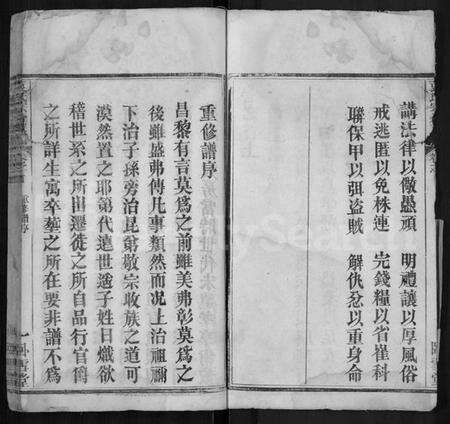 講法律以儆愚頑　明禮讓以厚風俗
戒逃匿以免株連　完錢糧以省催科
聯保甲以弭盜賊　解仇忿以重身命
重修譜序
昌黎有言莫為之前雖美弗彰莫為之
後雖盛弗傳凡事類然而況上治祖禰
下治子孫旁治昆弟敬宗收族之道可
漠然置之耶第代遠世遞子姓日熾欲
稽世系之所由遷徙之所自品行官爵
之所詳生寓卒葬之所在要非譜不為
重修譜序
一